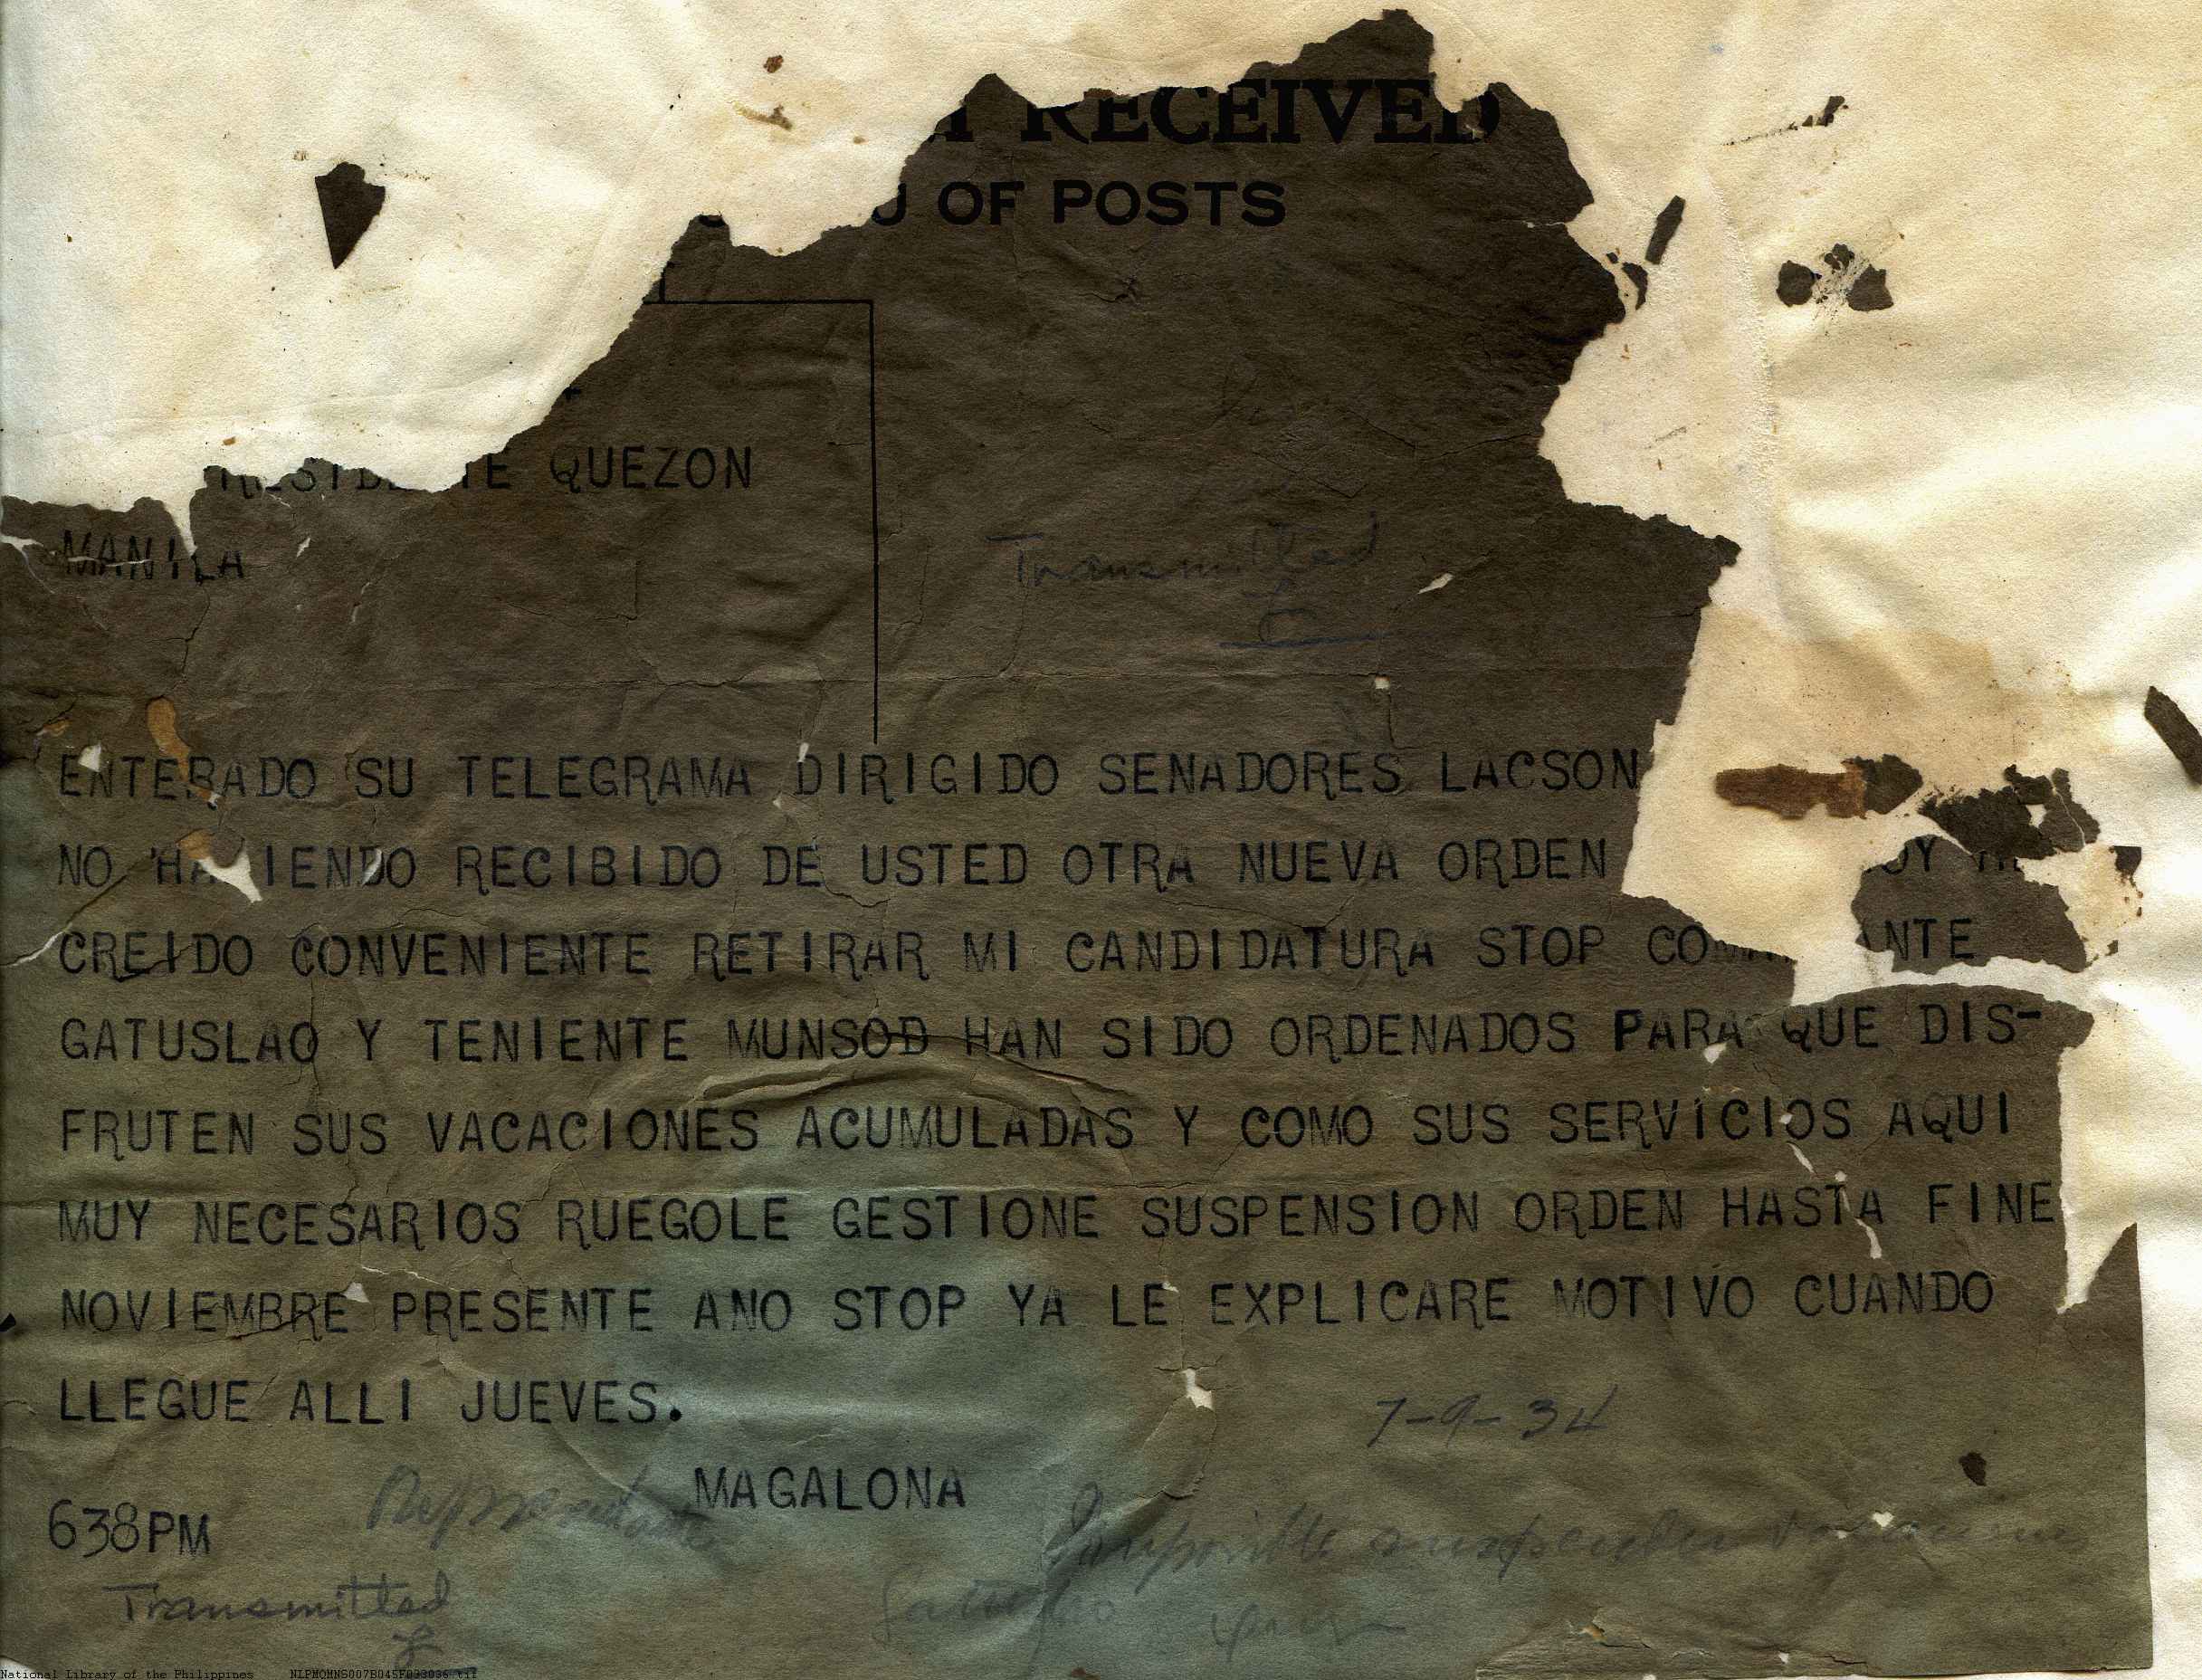 RECEIVED
OF POSTS
QUEZON
MANILA
Transmitted
ENTERADO SU TELEGRAMA DIRIGIDO SENADORES LACSON
NO RECIBIDO DE USTED OTRA NUEVA ORDEN
CREIDO CONVENIENTE RETIRAR MI CANDIDATURA STOP
GATUSLAO Y TENIENTE MUNSOD HAN SIDO ORDENADOS PARA QUE DIS-
FRUTEN SUS VACACIONES ACUMULADAS Y COMO SUS SERVICIOS AQUI
MUY NECESARIOS RUEGOLE GESTIONE SUSPENSION ORDEN HASTA FINE
NOVIEMBRE PRESENTE ANO STOP YA LE EXPLICARE MOTIVO CUANDO
LLEGUE ALLI JUEVES.
7-9-34
MAGALONA
638PM
Imposible suspender vacaciones
Transmitted
National Library of the Philippines NLPMQMNS007B045F033036.tif